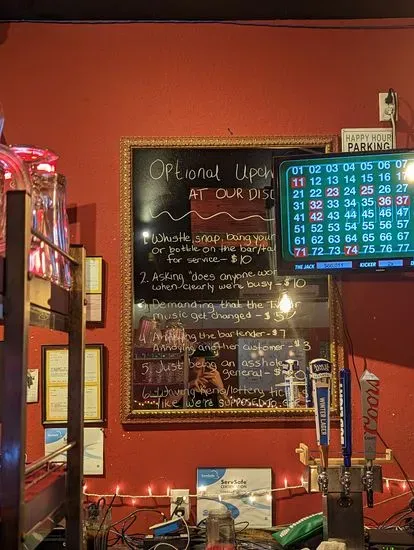 Optional Upch
AT OUR DISC
1. Whistle, snap, bang your
or bottle on the bar/ta
for service - $10
2. Asking "does anyone wor
when clearly we're busy - $10
3. Demanding that the TV or
music get changed - $5
4. Annoying the bartender - $7
Annoying another customer - $3
5. Just being an asshole
general - $
6. Waving keno/lottery tic
like we're supposed to
HAPPY HOUR
PARKING
01 02 03 04 05 06 07
11 12 13 14 15 16 17
21 22 23 24 25 26 27
31 32 33 34 35 36 37
41 42 43 44 45 46 47
51 52 53 54 55 56 57
61 62 63 64 65 66 67
71 72 73 74 75 76 77
THE JACK
KICKER
WINTER LAGER
ServSafe
ServSafe
CERTIFICATION